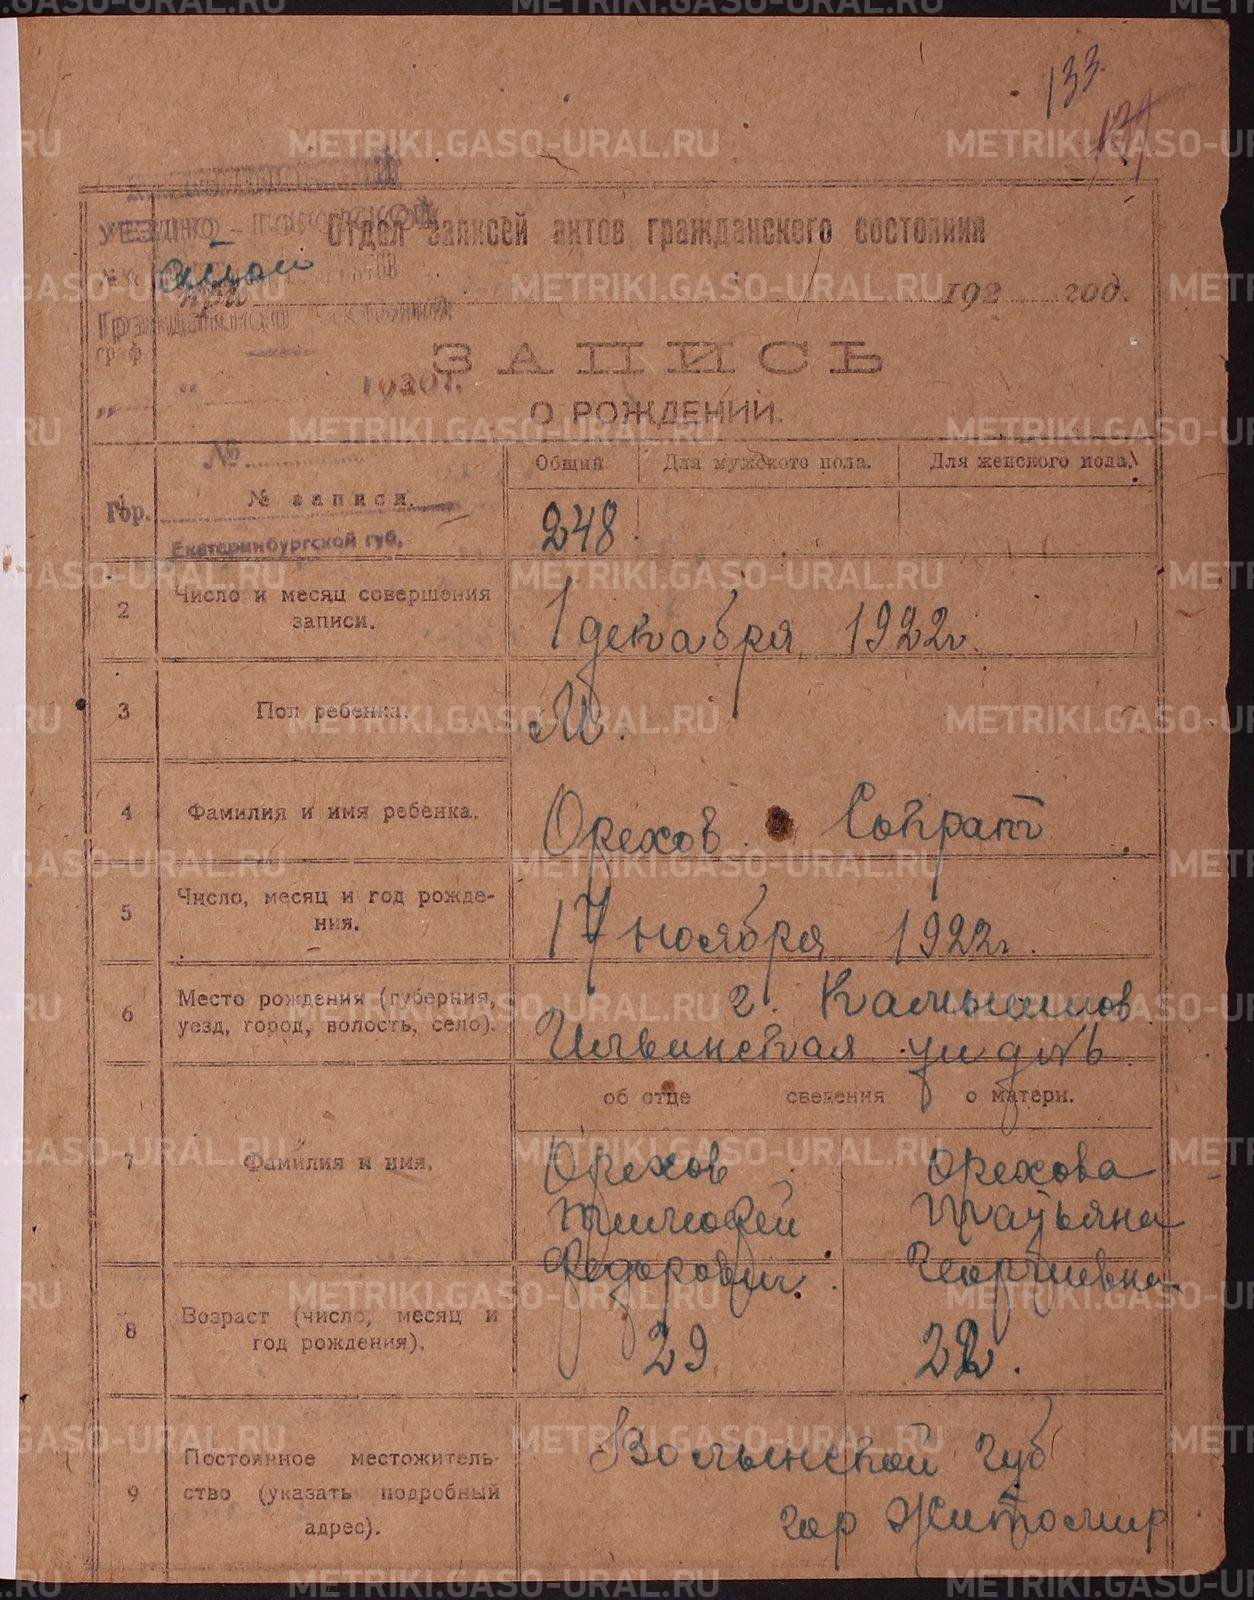 METRIKI.GASO-URAL.RU
133
Отдел записей актов гражданского состояния
УЕЗДНО-ГОРОДСКОЙ
Гражданского состояния
192 год.
граф
ЗАПИСЬ
" " 1920 г.
О РОЖДЕНИИ.
№
Общий Для мужского пола. Для женского пола.
1 № записи. 248.
Гор.
Екатеринбургской губ.
2 Число и месяц совершения записи. 1 декабря 1922 г.
3 Пол ребенка. М.
4 Фамилия и имя ребенка. Орехов Сократ
5 Число, месяц и год рожде-
ния. 17 ноября 1922 г.
6 Место рождения (губерния,
уезд, город, волость, село). г. Камышлов
об отце сведения о матери.
7 Фамилия и имя. Орехов Орехова
Тимофей Татьяна
Федорович. Георгиевна
8 Возраст (число, месяц и
год рождения). 29 22.
9 Постоянное местожитель-
ство (указать подробный
адрес). Волынской губ
гор Житомир